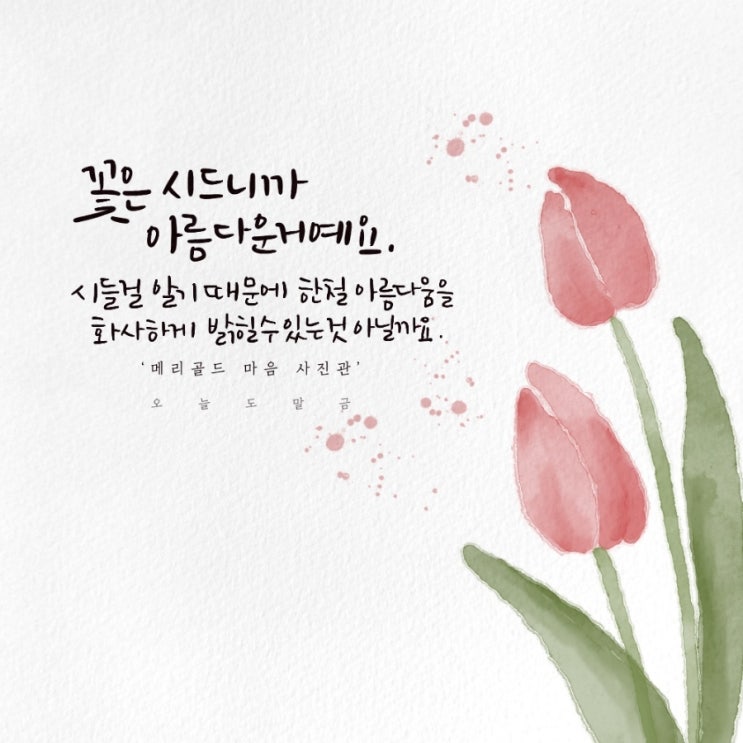 꽃은 시드니까
아름다운거예요.
시들걸 알기 때문에 한철 아름다움을
화사하게 밝힐수있는것 아닐까요.
'메리골드 마음 사진관'
오늘도말금